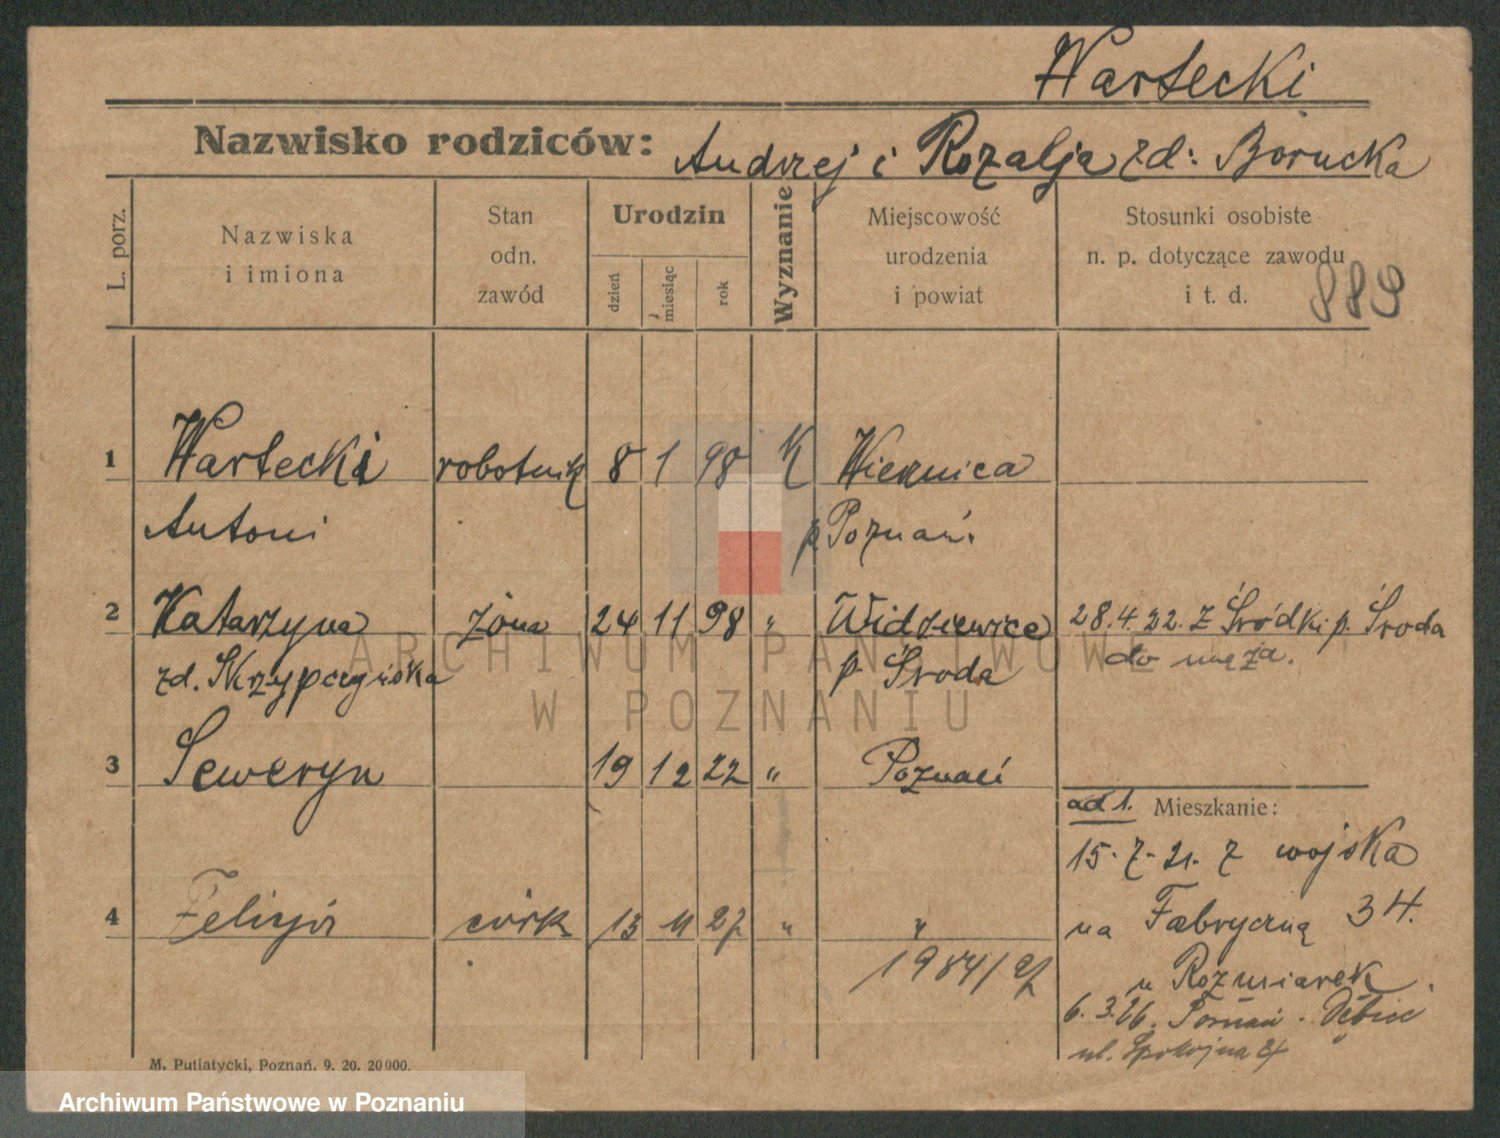 Wartecki
Nazwisko rodziców: Andrzej i Rozalja zd: Borucka
L. porz.
Nazwiska
i imiona
Stan
odn.
zawód
Urodzin
dzień
miesiąc
rok
Wyznanie
Miejscowość
urodzenia
i powiat
Stosunki osobiste
n. p. dotyczące zawodu
i t. d.
889
1 Wartecki robotnik 8 1 98 K Wiernica
Antoni p. Poznań.
2 Katarzyna żona 24 11 98 " Widziewice 28.4.22. z Śródki p. Środa
zd. Skrzypczyńska p. Środa do męża.
3 Seweryn 19 12 22 " Poznań
ad 1. Mieszkanie:
15.7.21. z wojska
4 Felicja córk 13 11 27 " " na Fabryczną 34.
1984/27
u Rozmiarek
6.3.26. Poznań - Dębiec
ul. Spokojna
M. Putiatycki, Poznań. 9. 20. 20000.
ARCHIWUM PAŃSTWOWE
W POZNANIU
Archiwum Państwowe w Poznaniu